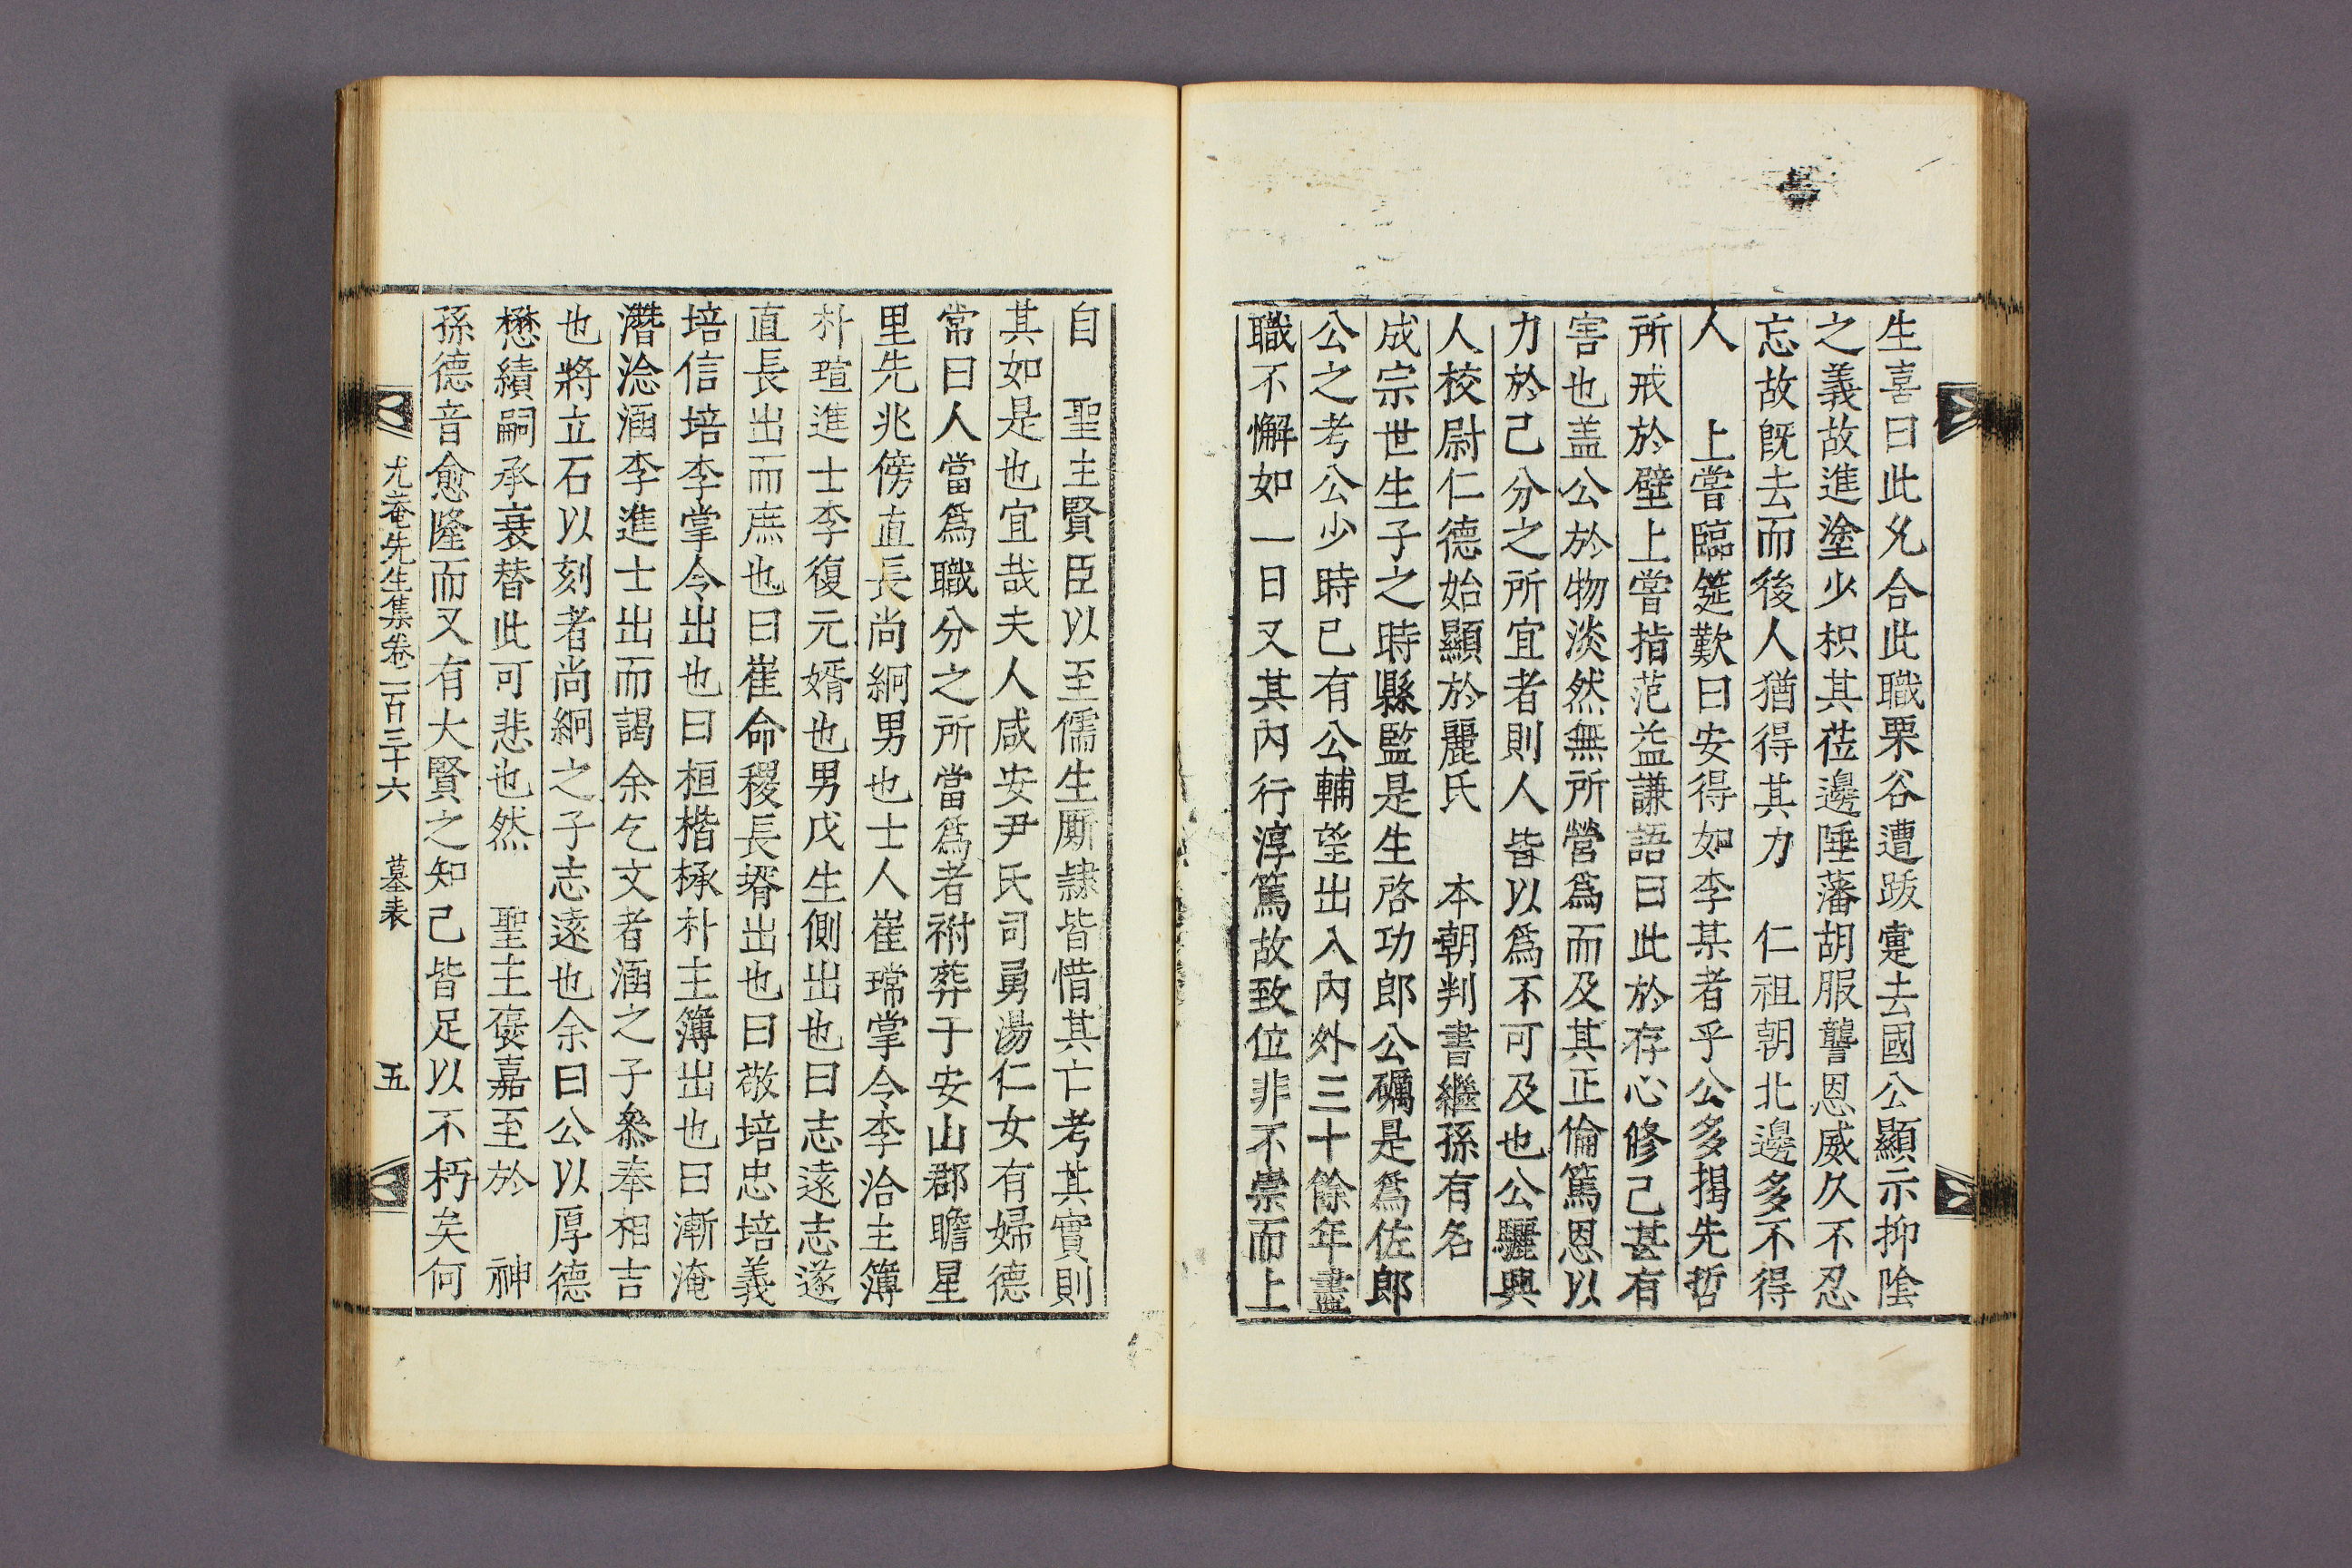 生喜曰此兒合此職栗谷遭跋疐去國公顯示抑陰
之義故進塗少枳其莅邊陲藩胡服讋恩威久不忍
忘故旣去而後人猶得其力　仁祖朝北邊多不得
人　上嘗臨筵歎曰安得如李某者乎公多揭先哲
所戒於壁上嘗指范益謙語曰此於存心修己甚有
害也盖公於物淡然無所營爲而及其正倫篤恩以
力於己分之所宜者則人皆以爲不可及也公驪興
人校尉仁德始顯於麗氏　本朝判書繼孫有名
成宗世生子之時縣監是生啓功郎公礪是爲佐郎
公之考公少時已有公輔望出入內外三十餘年盡
職不懈如一日又其內行淳篤故致位非不崇而上
自　聖主賢臣以至儒生厮隷皆惜其亡考其實則
其如是也宜哉夫人咸安尹氏司勇湯仁女有婦德
常曰人當爲職分之所當爲者祔葬于安山郡瞻星
里先兆傍直長尚絅男也士人崔瑺掌令李洽主簿
朴瑄進士李復元婿也男戊生側出也曰志遠志遂
直長出而庶也曰崔命稷長壻出也曰敬培忠培義
培信培李掌令出也曰桓楷極朴主簿出也曰漸淹
濳淰涵李進士出而謁余乞文者涵之子叅奉相吉
也將立石以刻者尚絅之子志遠也余曰公以厚德
懋績嗣承衰替此可悲也然　聖主褒嘉至於　神
孫德音愈隆而又有大賢之知己皆足以不朽矣何
尤菴先生集卷一百三十六　墓表　五